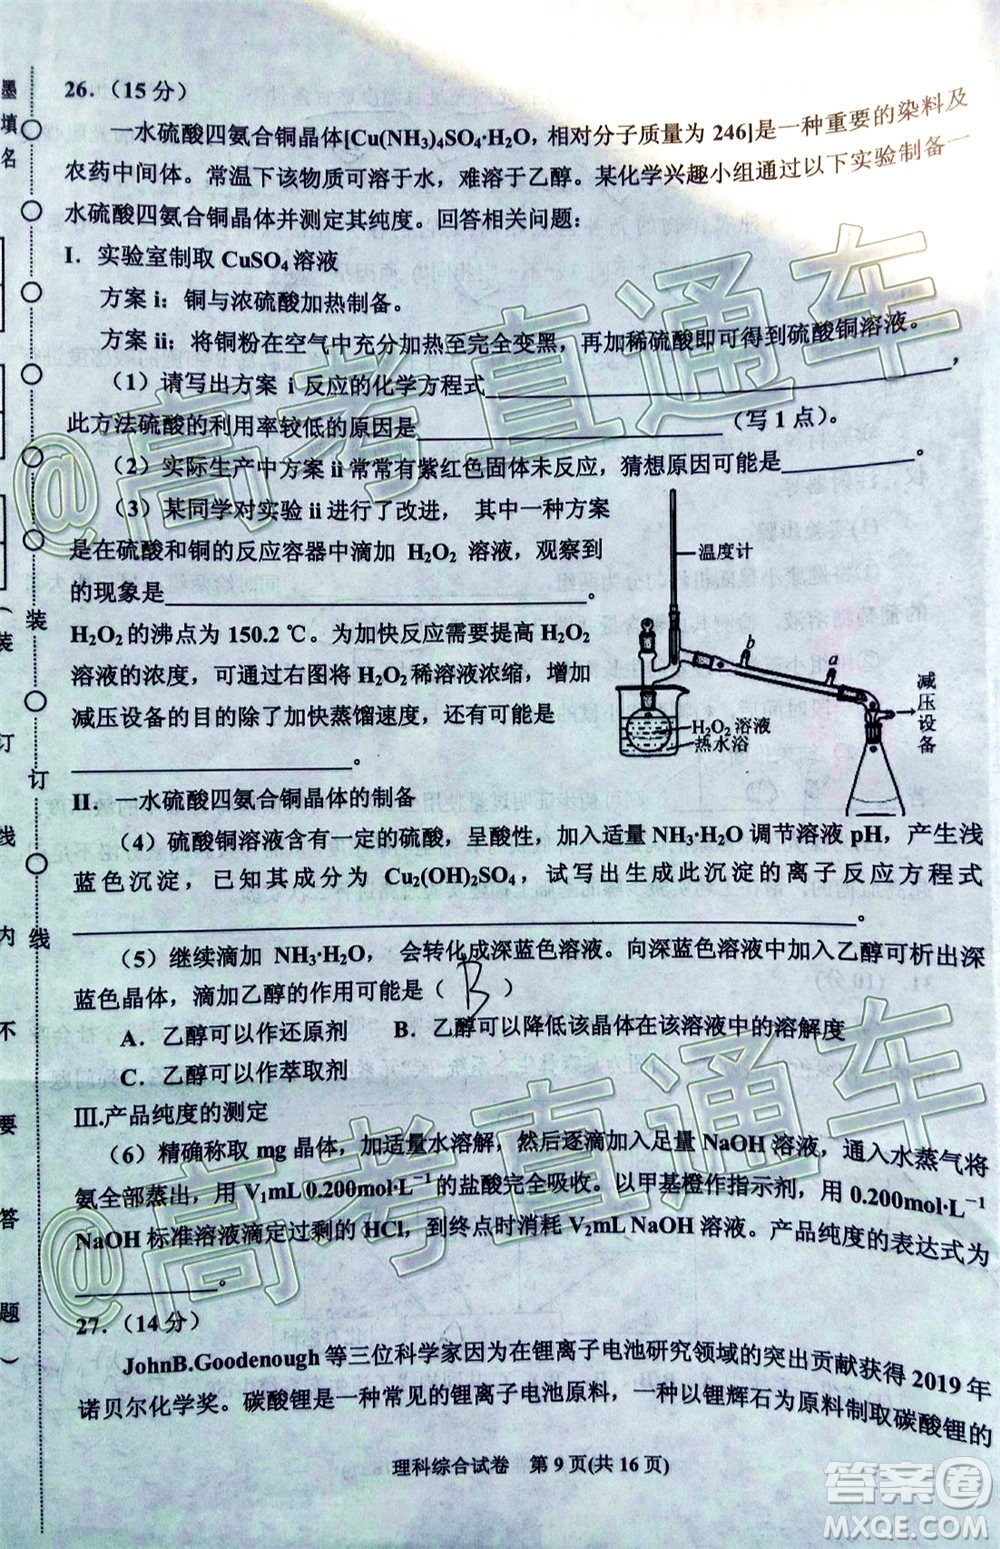 26.（15 分）
一水硫酸四氨合铜晶体[Cu(NH₃)₄SO₄·H₂O，相对分子质量为 246]是一种重要的染料及
农药中间体。常温下该物质可溶于水，难溶于乙醇。某化学兴趣小组通过以下实验制备一
水硫酸四氨合铜晶体并测定其纯度。回答相关问题：
I．实验室制取 CuSO₄ 溶液
方案 i：铜与浓硫酸加热制备。
方案 ii：将铜粉在空气中充分加热至完全变黑，再加稀硫酸即可得到硫酸铜溶液。
（1）请写出方案 i 反应的化学方程式，
此方法硫酸的利用率较低的原因是（写 1 点）。
（2）实际生产中方案 ii 常常有紫红色固体未反应，猜想原因可能是。
（3）某同学对实验 ii 进行了改进，其中一种方案
是在硫酸和铜的反应容器中滴加 H₂O₂ 溶液，观察到
的现象是。
H₂O₂ 的沸点为 150.2 ℃。为加快反应需要提高 H₂O₂
溶液的浓度，可通过右图将 H₂O₂ 稀溶液浓缩，增加
减压设备的目的除了加快蒸馏速度，还有可能是
。
温度计
b
a
减压设备
H₂O₂ 溶液
热水浴
II．一水硫酸四氨合铜晶体的制备
（4）硫酸铜溶液含有一定的硫酸，呈酸性，加入适量 NH₃·H₂O 调节溶液 pH，产生浅
蓝色沉淀，已知其成分为 Cu₂(OH)₂SO₄，试写出生成此沉淀的离子反应方程式
。
（5）继续滴加 NH₃·H₂O，会转化成深蓝色溶液。向深蓝色溶液中加入乙醇可析出深
蓝色晶体，滴加乙醇的作用可能是（ B ）
A．乙醇可以作还原剂 B．乙醇可以降低该晶体在该溶液中的溶解度
C．乙醇可以作萃取剂
Ⅲ.产品纯度的测定
（6）精确称取 mg 晶体，加适量水溶解，然后逐滴加入足量 NaOH 溶液，通入水蒸气将
氨全部蒸出，用 V₁mL 0.200mol·L⁻¹ 的盐酸完全吸收。以甲基橙作指示剂，用 0.200mol·L⁻¹
NaOH 标准溶液滴定过剩的 HCl，到终点时消耗 V₂mL NaOH 溶液。产品纯度的表达式为
。
27.（14 分）
JohnB.Goodenough 等三位科学家因为在锂离子电池研究领域的突出贡献获得 2019 年
诺贝尔化学奖。碳酸锂是一种常见的锂离子电池原料，一种以锂辉石为原料制取碳酸锂的
理科综合试卷 第 9 页(共 16 页)
墨填名
装
订
线
（装
订
线
内
不
要
答
题
）
@高考直通车
@高考直通车
答案圈
MXQE.COM